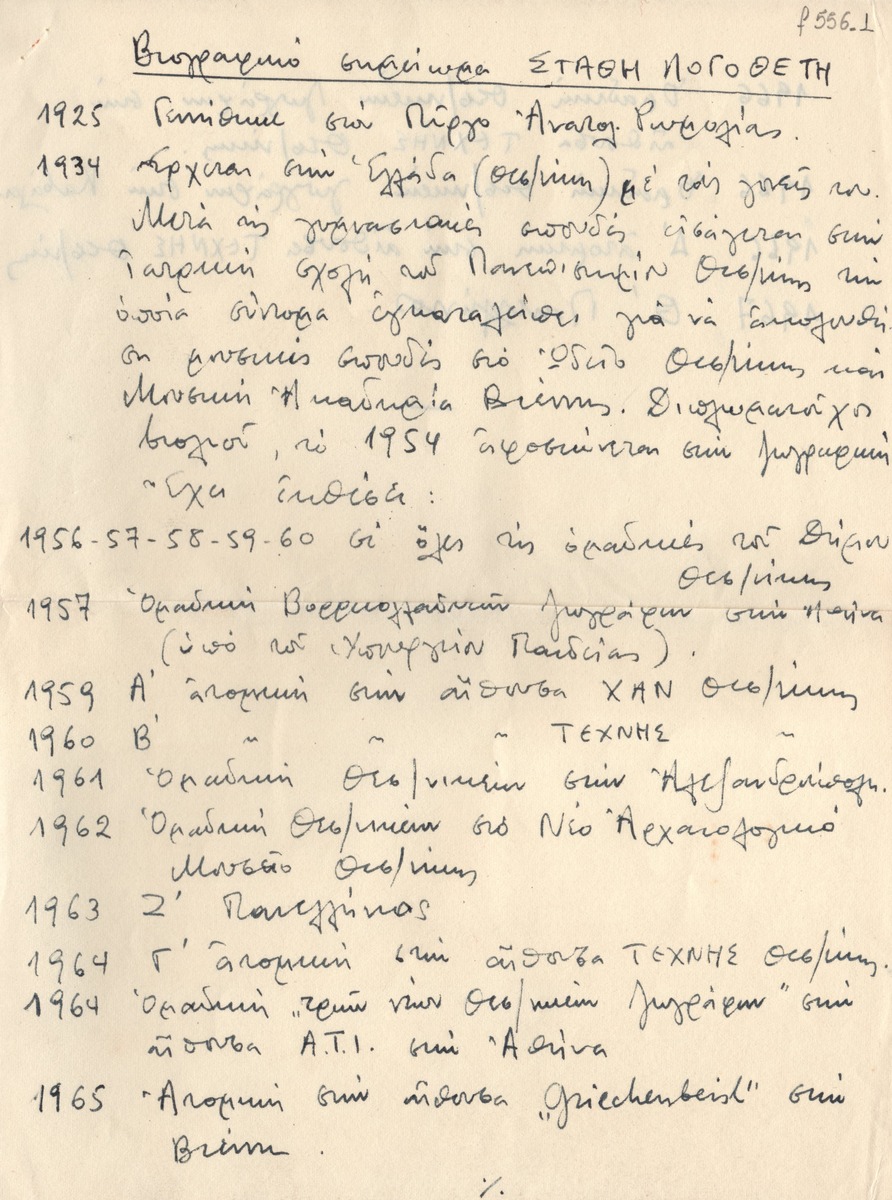 f 556.1
Βιογραφικό σημείωμα ΣΤΑΘΗ ΛΟΓΟΘΕΤΗ
1925 Γεννήθηκε στόν Πύργο Ἀνατολ. Ρωμυλίας.
1934 Ἔρχεται στήν Ἑλλάδα (Θεσ/νίκη) μέ τούς γονεῖς του.
Μετά τίς γυμνασιακές σπουδές εἰσάγεται στήν
Ἰατρική σχολή τοῦ Πανεπιστημίου Θεσ/νίκης τήν
ὁποία σύντομα ἐγκαταλείπει γιά νά ἀκολουθή-
ση μουσικές σπουδές στό Ὠδεῖο Θεσ/νίκης καί
Μουσική Ἀκαδημία Βιέννης. Διπλωματοῦχος
βιολιοῦ, τό 1954 ἀφοσιώνεται στήν ζωγραφική
Ἔχει ἐκθέσει:
1956-57-58-59-60 σέ ὅλες τίς ὁμαδικές τοῦ Δήμου
Θεσ/νίκης
1957 Ὁμαδική Βορειοελλαδιτῶν ζωγράφων στήν Ἀθήνα
(ὑπό τοῦ Ὑπουργείου Παιδείας).
1959 Α' ἀτομική στήν αἴθουσα ΧΑΝ Θεσ/νίκης
1960 Β' " " " ΤΕΧΝΗΣ "
1961 Ὁμαδική Θεσ/νικέων στήν Ἀλεξανδρούπολη.
1962 Ὁμαδική Θεσ/νικέων στό Νέο Ἀρχαιολογικό
Μουσεῖο Θεσ/νίκης
1963 Ζ' Πανελλήνιος
1964 Γ' ἀτομική στήν αἴθουσα ΤΕΧΝΗΣ Θεσ/νίκης.
1964 Ὁμαδική „τριῶν νέων Θεσ/νικέων ζωγράφων" στήν
αἴθουσα Α.Τ.Ι. στήν Ἀθήνα
1965 Ἀτομική στήν αἴθουσα „Griechenbeisl" στήν
Βιέννη.
./.